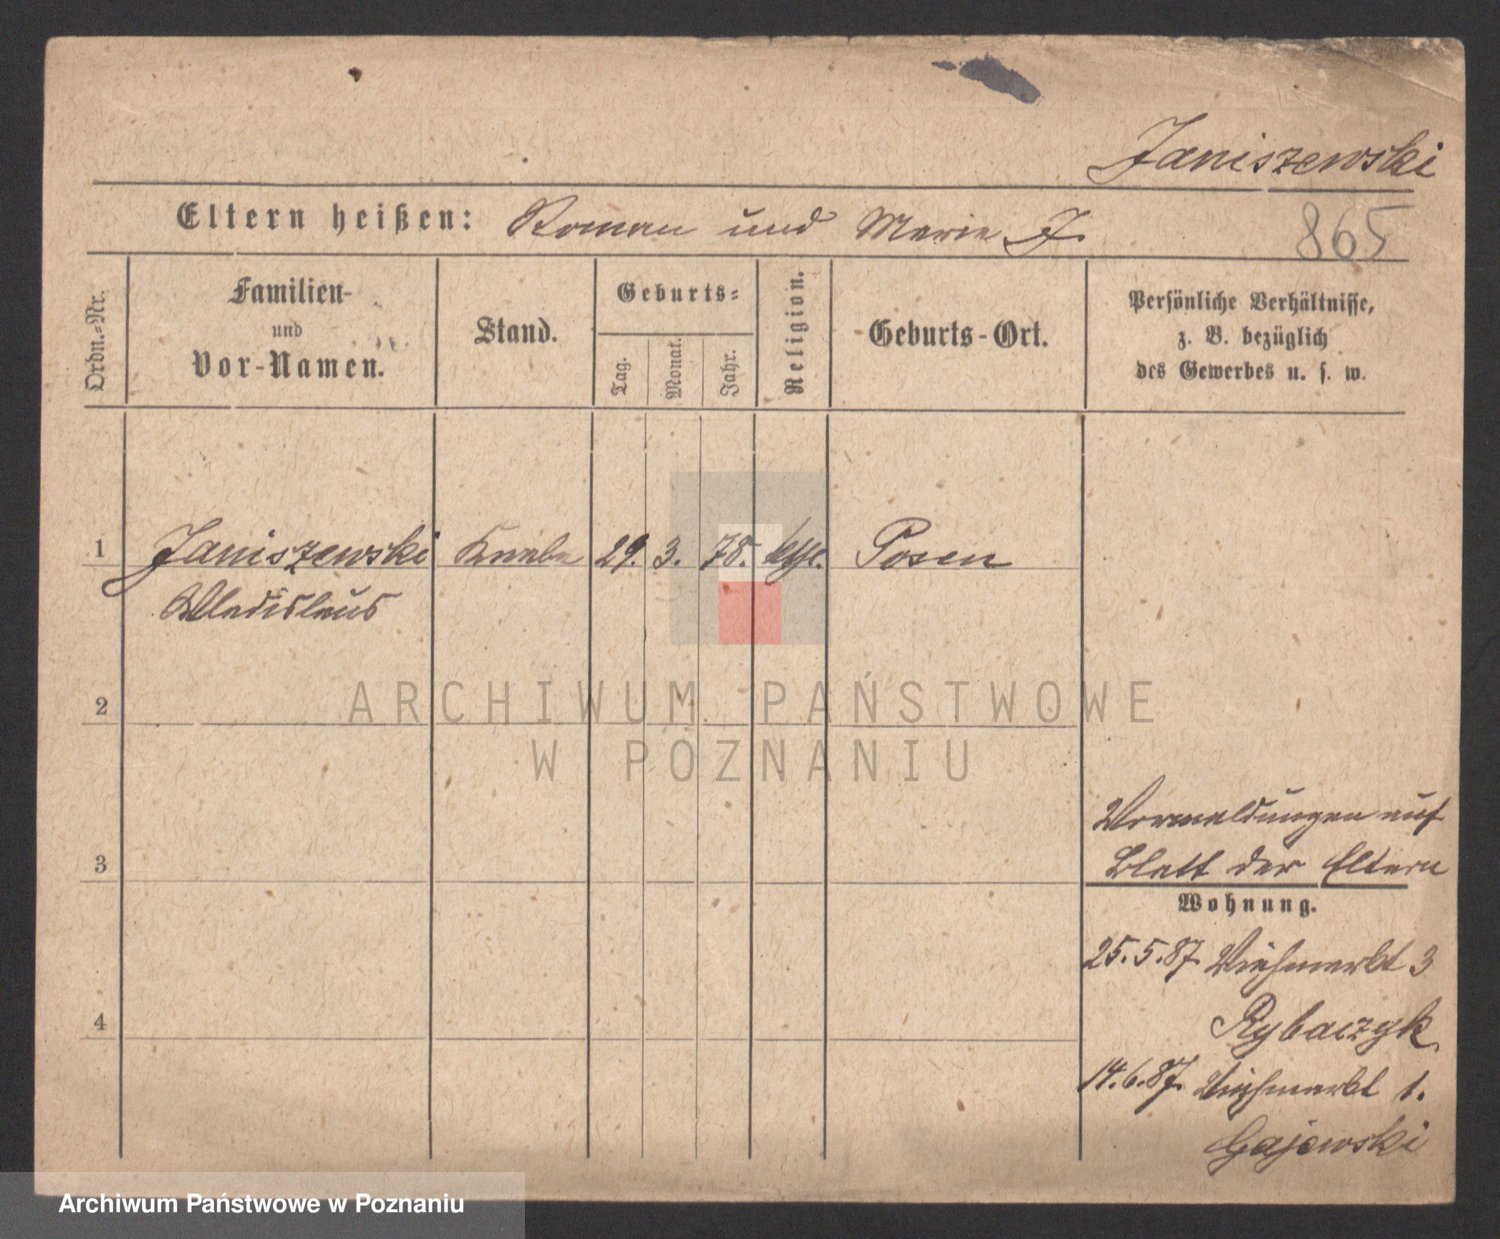 Janiszewski
Eltern heißen: Roman und Marie J.
865
Ordn.-Nr.
Familien-
und
Vor-Namen.
Stand.
Geburts-
Tag.
Monat.
Jahr.
Religion.
Geburts-Ort.
Persönliche Verhältnisse,
z. B. bezüglich
des Gewerbes u. s. w.
1 Janiszewski Knabe 29. 3. 78. kth. Posen
Wladislaus
ARCHIWUM PAŃSTWOWE
W POZNANIU
2
3
4
Vormeldungen auf
Blatt der Eltern
Wohnung.
25.5.87 Viehmarkt 3
Rybaczyk
14.6.87 Viehmarkt 1.
Gajewski
Archiwum Państwowe w Poznaniu